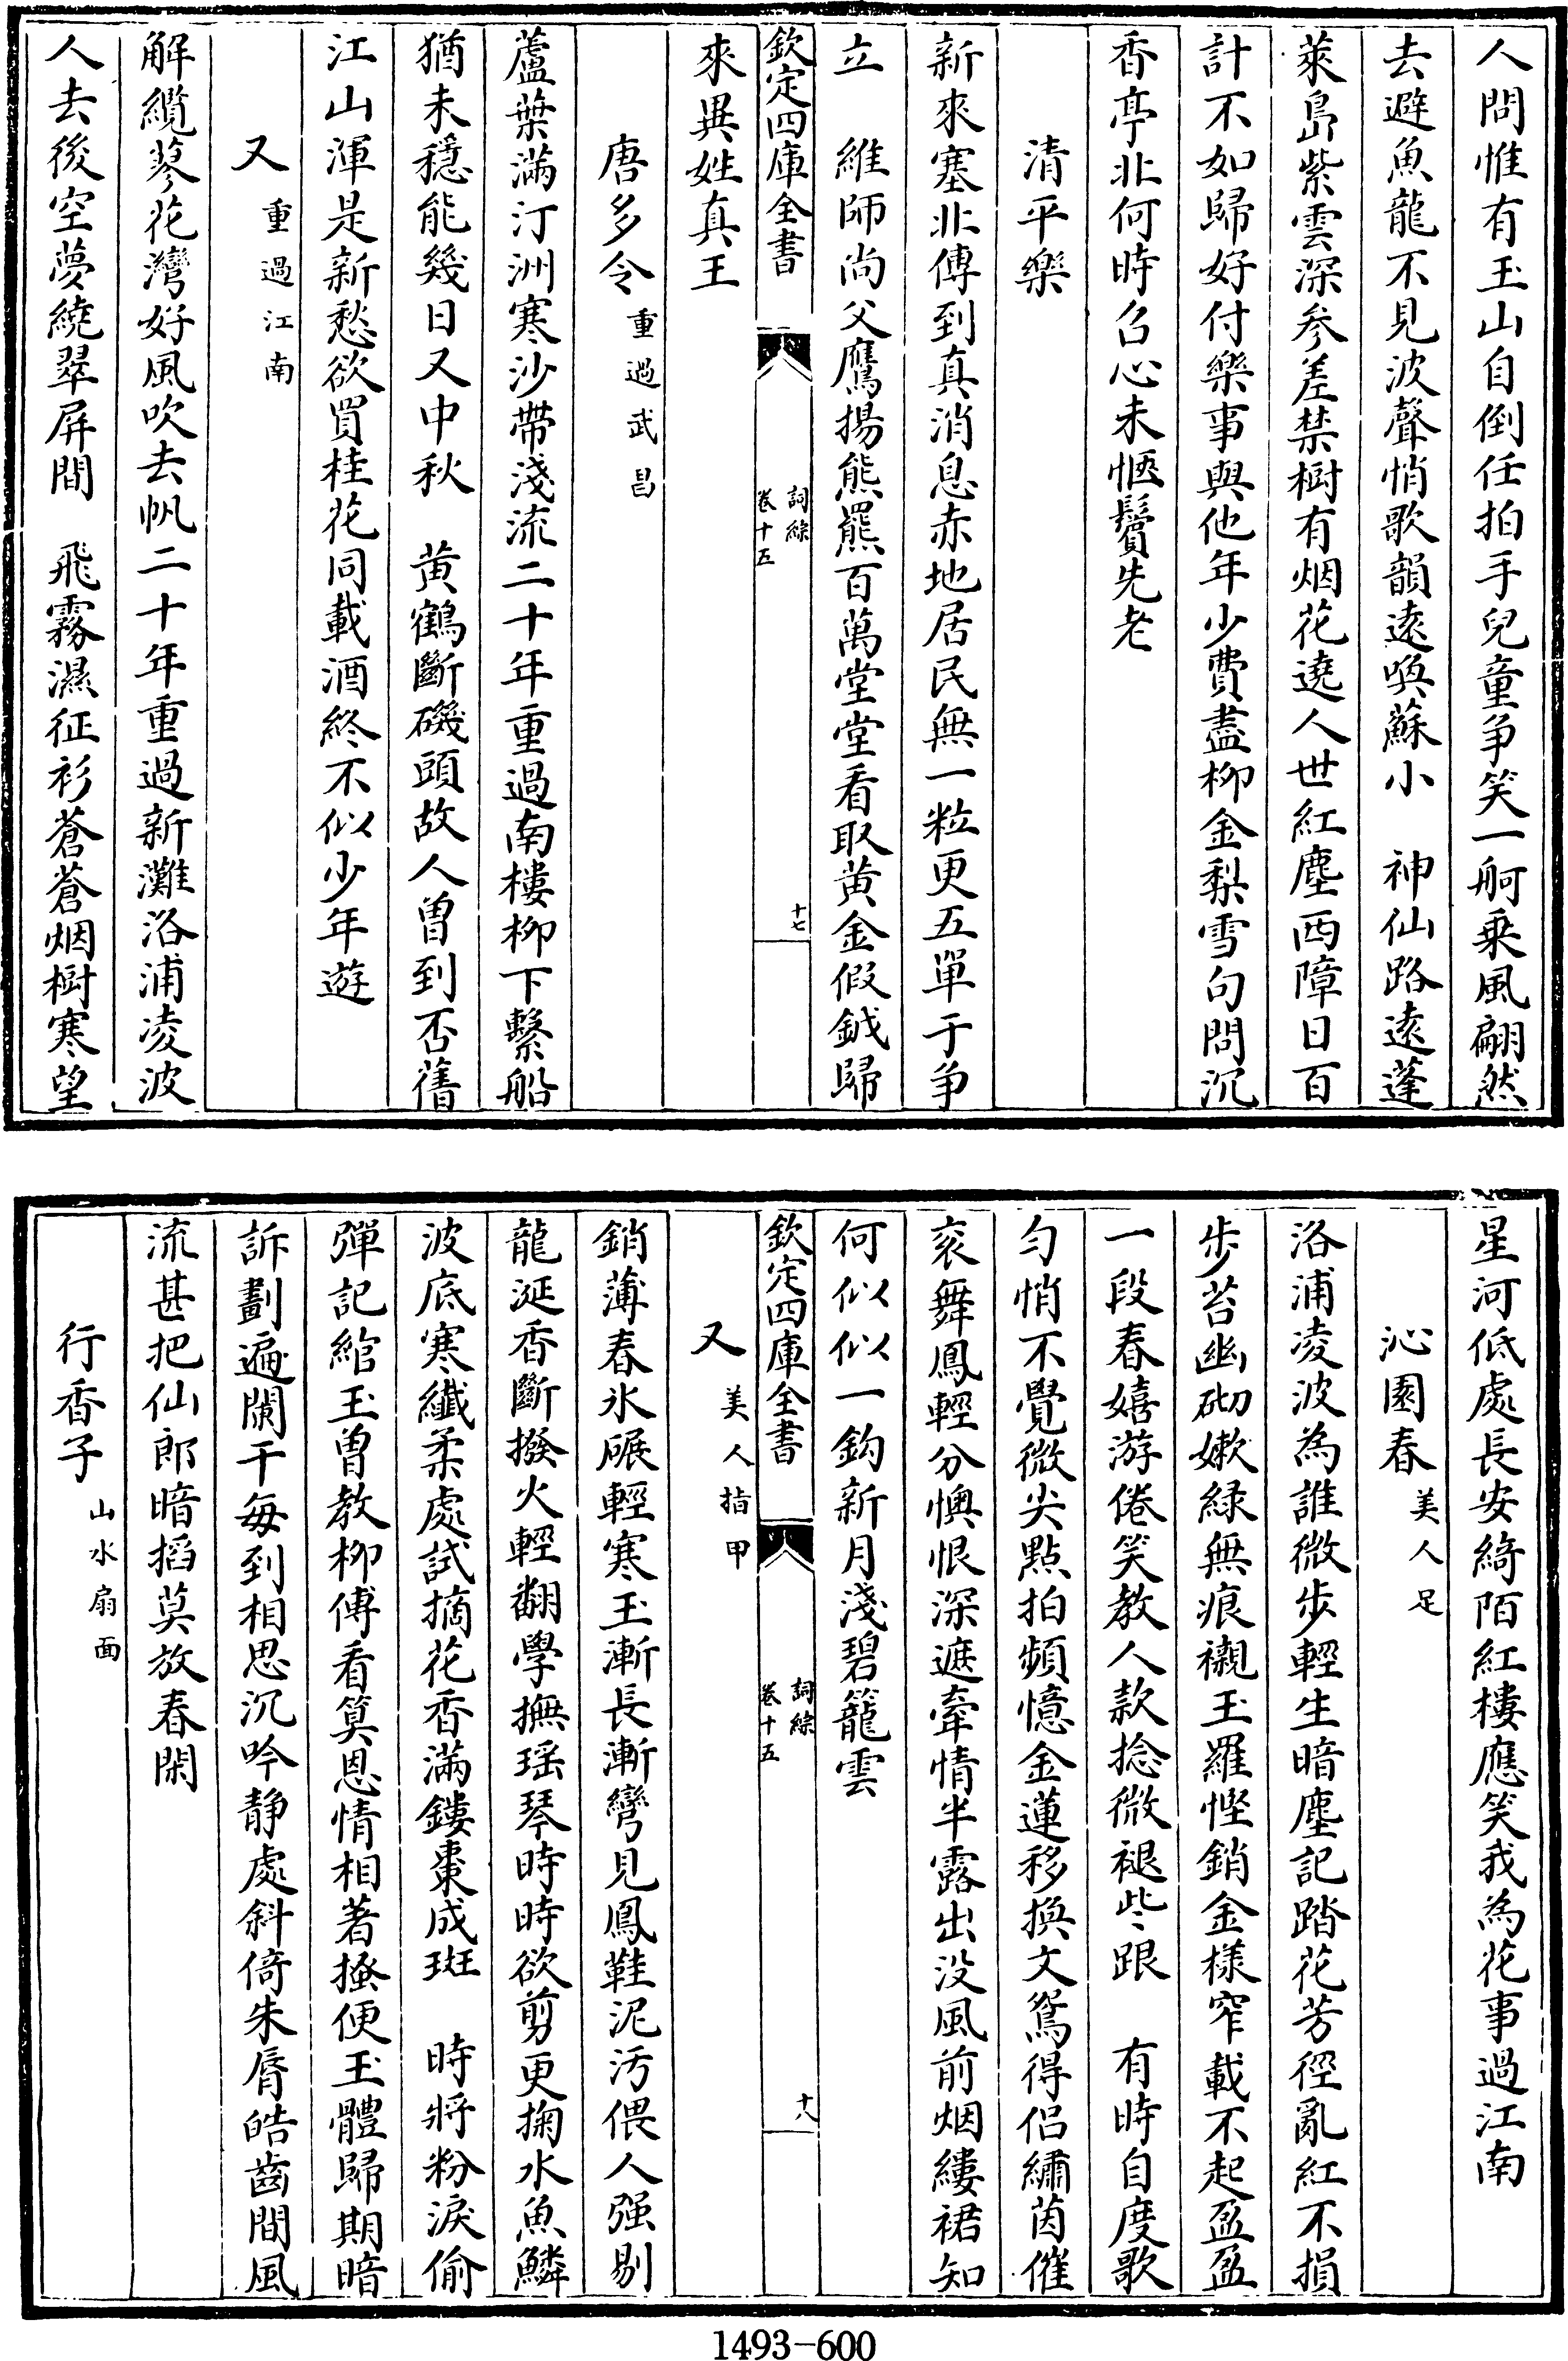 人問惟有玉山自倒任拍手兒童争笑一舸乗風翩然
去避魚龍不見波聲悄歌韻遠喚蘇小　神仙路遠蓬
萊島紫雲深參差禁樹有烟花遶人世紅塵西障日百
計不如歸好付樂事與他年少費盡柳金梨雪句問沉
香亭北何時召心未愜鬢先老
清平樂
新來塞北傳到真消息赤地居民無一粒更五單于争
立　維師尚父鷹揚熊羆百萬堂堂看取黄金假鉞歸
欽定四庫全書
詞綜
卷十五
十七
來異姓真王
唐多令重過武昌
蘆葉滿汀洲寒沙帶淺流二十年重過南樓柳下繫船
猶未穩能幾日又中秋　黄鶴斷磯頭故人曾到否舊
江山渾是新愁欲買桂花同載酒終不似少年遊
又重過江南
解纜蓼花灣好風吹去帆二十年重過新灘洛浦凌波
人去後空夢繞翠屏間　飛霧濕征衫蒼蒼烟樹寒望
星河低處長安綺陌紅樓應笑我為花事過江南
沁園春美人足
洛浦凌波為誰微步輕生暗塵記踏花芳徑亂紅不損
步苔幽砌嫩緑無痕襯玉羅慳銷金様窄載不起盈盈
一段春嬉游倦笑教人款捻微褪些跟　有時自度歌
勻悄不覺微尖點拍頻憶金蓮移換文鴛得侣繡茵催
衮舞鳳輕分懊恨深遮牽情半露出没風前烟縷裙知
何似似一鈎新月淺碧籠雲
欽定四庫全書
詞綜
卷十五
十八
又美人指甲
銷薄春氷碾輕寒玉漸長漸彎見鳳鞋泥汚偎人强剔
龍涎香斷撥火輕翻學撫瑶琴時時欲剪更掬水魚鱗
波底寒纎柔處試摘花香滿鏤棗成斑　時將粉淚偷
彈記綰玉曾教柳傅看算恩情相著搔便玉體歸期暗
訴劃遍闌干每到相思沉吟静處斜倚朱脣皓齒間風
流甚把仙郎暗掐莫放春閑
行香子山水扇面
1493-600